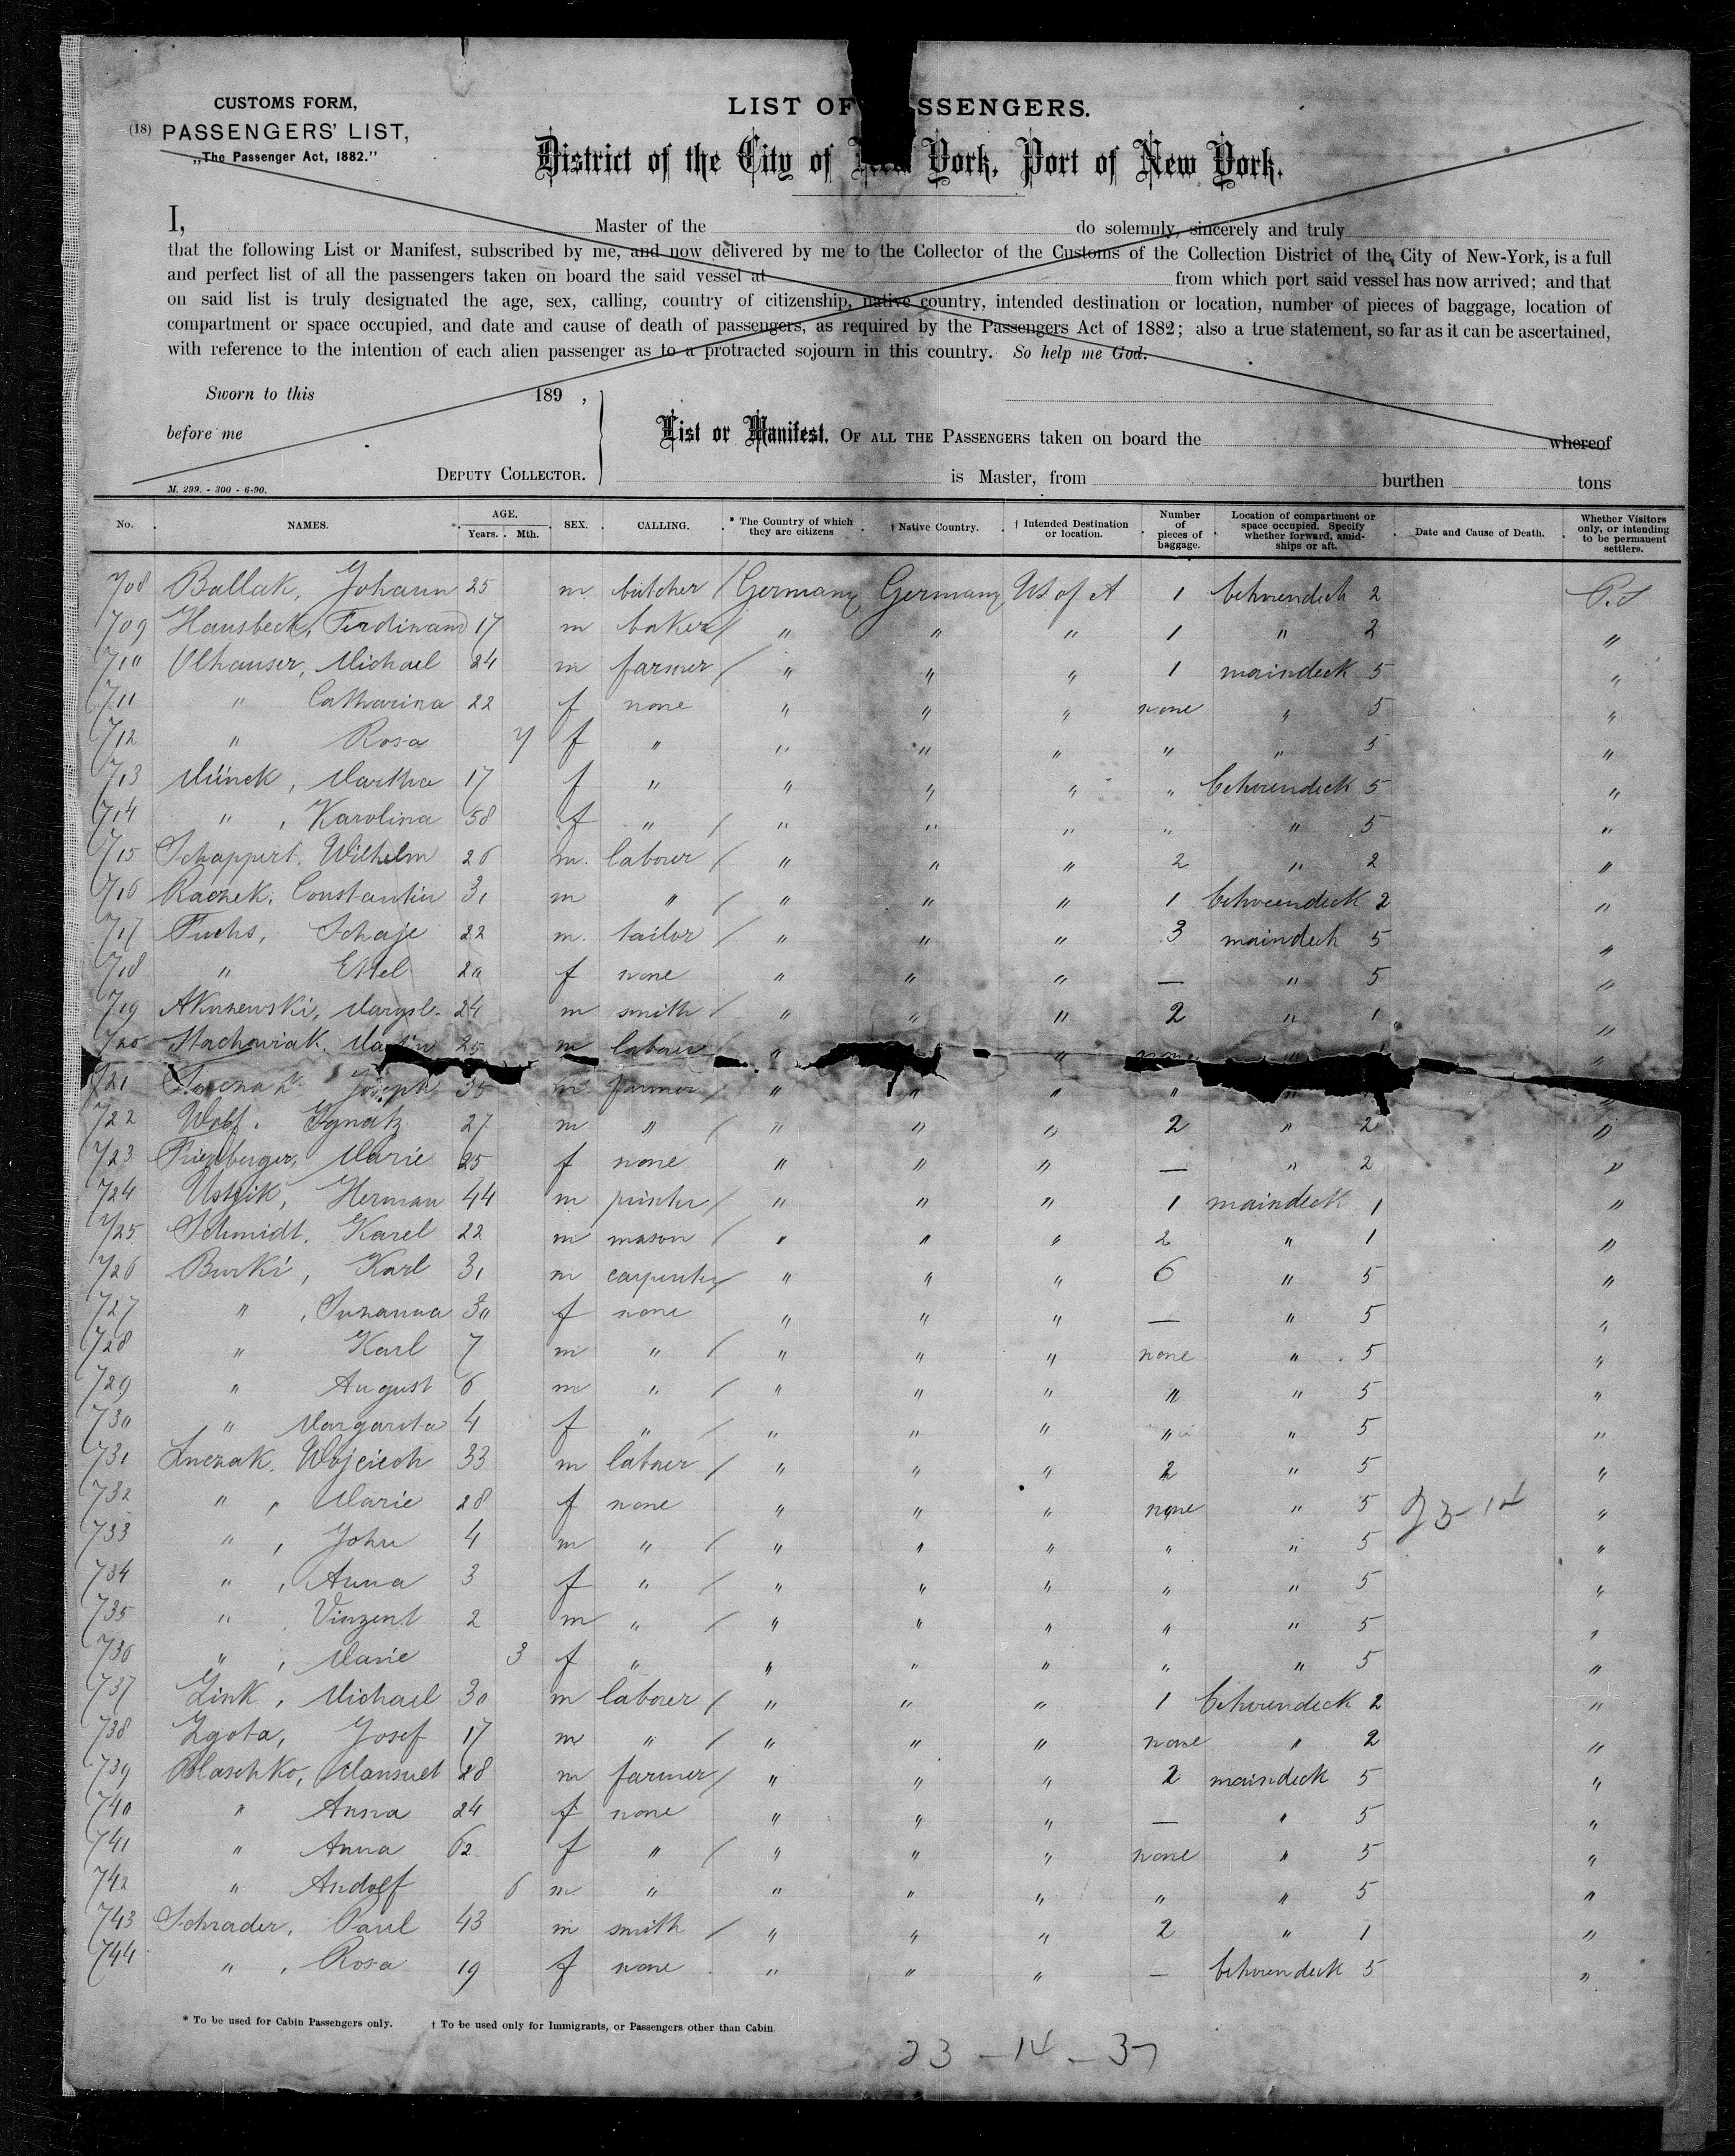 CUSTOMS FORM,
(18) PASSENGERS' LIST,
„The Passenger Act, 1882."
LIST OF SSENGERS.
District of the City of New York, Port of New York.
I, Master of the do solemnly, sincerely and truly
that the following List or Manifest, subscribed by me, and now delivered by me to the Collector of the Customs of the Collection District of the City of New-York, is a full
and perfect list of all the passengers taken on board the said vessel at from which port said vessel has now arrived; and that
on said list is truly designated the age, sex, calling, country of citizenship, native country, intended destination or location, number of pieces of baggage, location of
compartment or space occupied, and date and cause of death of passengers, as required by the Passengers Act of 1882; also a true statement, so far as it can be ascertained,
with reference to the intention of each alien passenger as to a protracted sojourn in this country. So help me God.
Sworn to this 189 ,
before me
List or Manifest, OF ALL THE PASSENGERS taken on board the whereof
DEPUTY COLLECTOR. is Master, from burthen tons
M. 299. - 300 - 6-90.
No. NAMES. AGE. Years. Mth. SEX. CALLING. * The Country of which they are citizens † Native Country. † Intended Destination or location. Number of pieces of baggage. Location of compartment or space occupied. Specify whether forward, amidships or aft. Date and Cause of Death. Whether Visitors only, or intending to be permanent settlers.
708 Ballak, Johann 25 m butcher / Germany Germany US of A 1 betweendeck 2
709 Hausbeck, Ferdinand 17 m baker / " " " 1 " 2 "
710 Ulhauser, Michael 24 m farmer / " " " 1 maindeck 5 "
711 " Catharina 22 f none " " " none " 5 "
712 " Rosa 7 f " " " " " " 5 "
713 Münck, Martha 17 f " " " " " betweendeck 5 "
714 " , Karolina 58 f " / " " " " " 5 "
715 Schappert, Wilhelm 26 m. labourer / " " " 2 " 2 "
716 Raczek, Constantin 31 m " / " " " 1 betweendeck 2 "
717 Fuchs, Schaje 22 m. tailor / " " " 3 maindeck 5 "
718 " Ettel 20 f none " " " — " 5 "
719 24 m smith / " " " 2 " 1 "
720 Stachowiak, Martin 25 m labourer " " none " "
721 Joseph 35 m farmer / " " " " " "
722 Wolf, Ignatz 27 m " / " " " 2 " 2 "
723 Marie 25 f none " " " — " 2 "
724 Herman 44 m / " " " 1 maindeck 1 "
725 Schmidt, Karel 22 m mason / " " " 2 " 1 "
726 Burki, Karl 31 m carpenter / " " " 6 " 5 "
727 " , Susanna 30 f none " " " — " 5 "
728 " Karl 7 m " / " " " none " 5 "
729 " August 6 m " / " " " " " 5 "
730 " Margarita 4 f " / " " " " " 5 "
731 Luczak, Wojciech 33 m labourer / " " " 2 " 5 "
732 " , Marie 28 f none " " " none " 5 23-14 "
733 " , John 4 m " / " " " " " 5 "
734 " , Anna 3 f " / " " " " " 5 "
735 " , Vinzent 2 m " / " " " " " 5 "
736 " , Marie 3 f " " " " " " 5 "
737 Link, Michael 30 m labourer / " " " 1 betweendeck 2 "
738 Zgota, Josef 17 m " / " " " none " 2 "
739 Blaschko, Mansuet 28 m farmer / " " " 2 maindeck 5 "
740 " Anna 24 f none " " " — " 5 "
741 " Anna 62 f " / " " " none " 5 "
742 " Andolf 6 m " " " " " " 5 "
743 Schrader, Paul 43 m smith / " " " 2 " 1 "
744 " , Rosa 19 f none " " " — betweendeck 5 "
* To be used for Cabin Passengers only. † To be used only for Immigrants, or Passengers other than Cabin
23-14-37